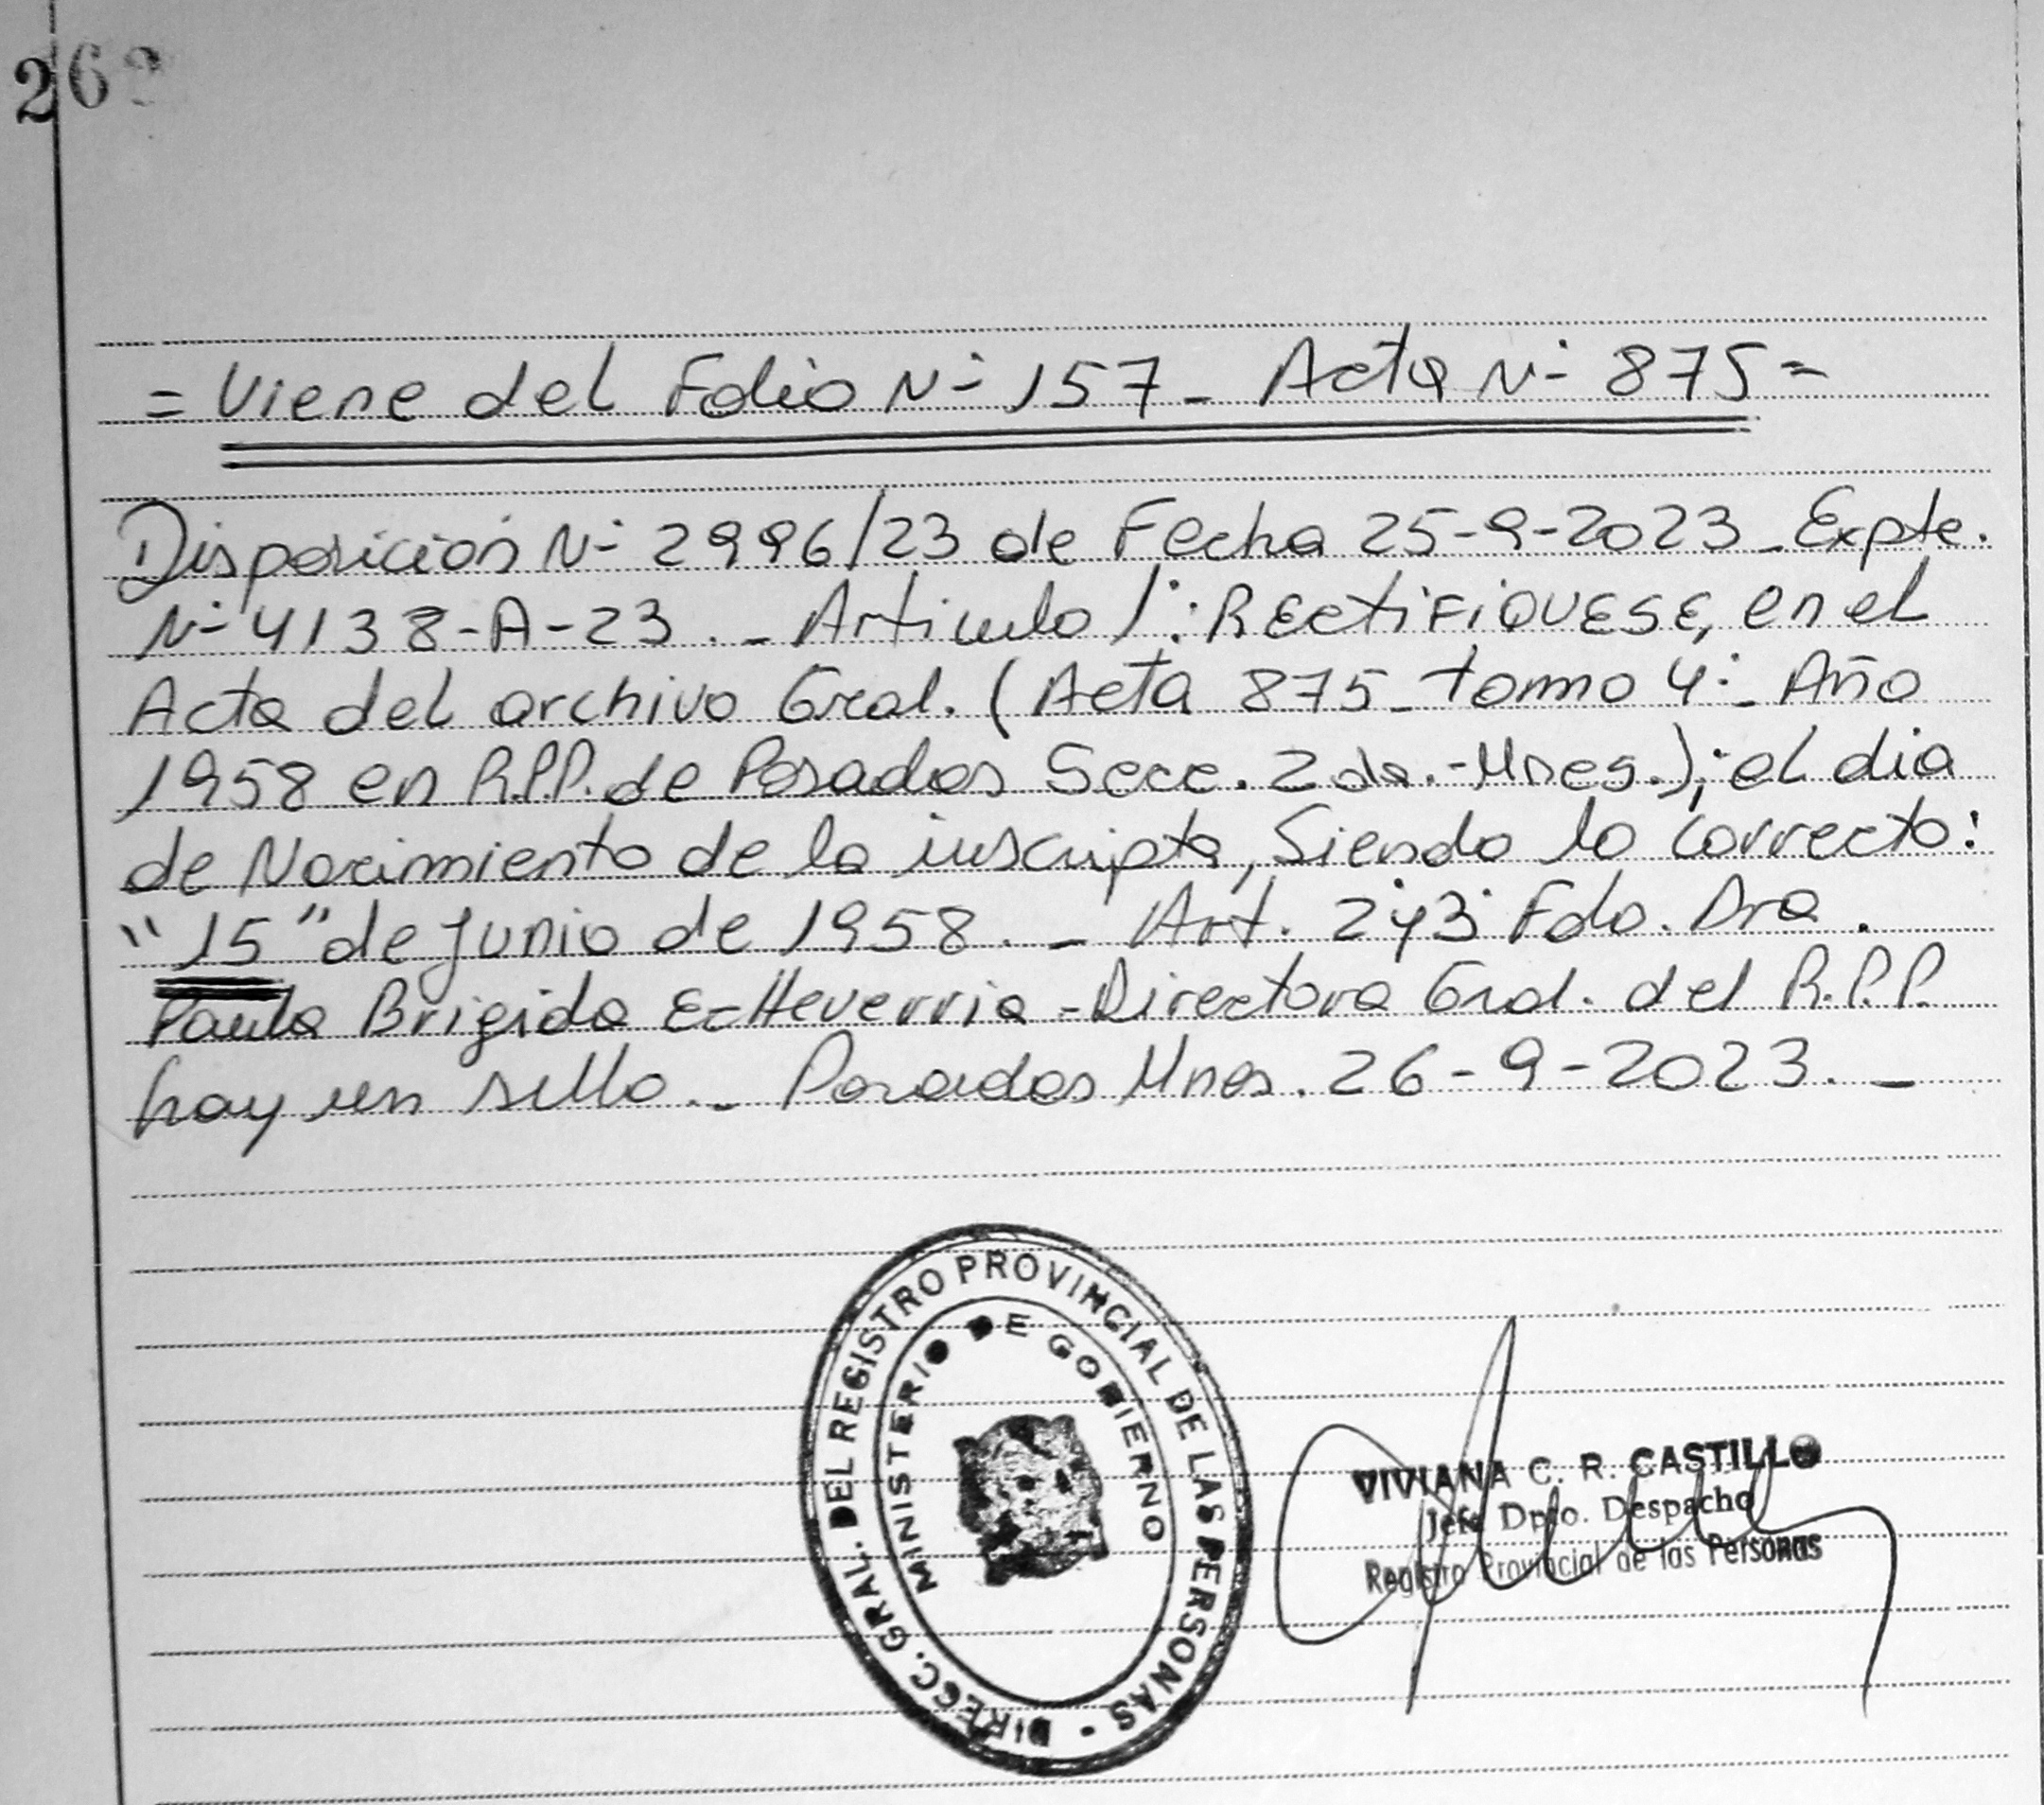 26
= Viene del Folio Nº 157 - Acta Nº 875 =
Disposición Nº 2996/23 de Fecha 25-9-2023 - Expte.
Nº 4138-A-23. - Articulo 1º: RECTIFIQUESE, en el
Acta del archivo Gral. (Acta 875 - tomo 4º - Año
1958 en R.P.P. de Posadas Secc. 2da. - Mnes.); el dia
de Nacimiento de la inscripta, Siendo lo correcto:
"15" de Junio de 1958. - Art. 2º y 3º Fdo. Dra.
Paula Brigida Echeverria - Directora Gral. del R.P.P.
hay un sello. - Posadas Mnes. 26-9-2023. -
DIRECC. GRAL. DEL REGISTRO PROVINCIAL DE LAS PERSONAS -
MINISTERIO DE GOBIERNO
VIVIANA C. R. CASTILLO
Jefe Dpto. Despacho
Registro Provincial de las Personas